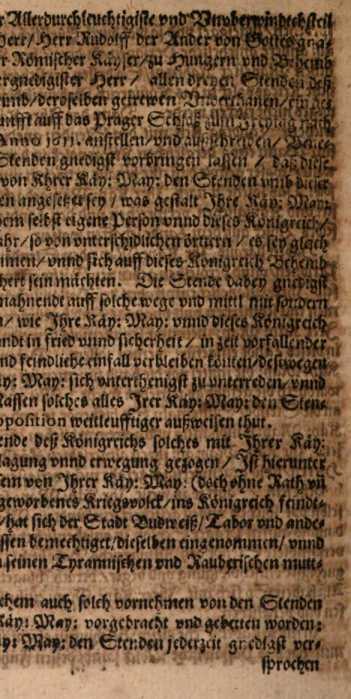 r Allerdurchleuchtigiste vnd Vnvberwindtchstei
Herr/ Herr Rudolff der Ander von Gottes gna-
r Römischer Käyser/ zu Hungern vnd Behemb
rgnedigister Herr/ allen dreyen Stenden deß
vnnd/ deroselben getrewen Vnderthanen/
unfft auff das Prager Schloß zum nach
Anno 1611. anstellen/ vnd außschreiben/
Stenden gnedigst vorbringen lassen / das diese
von Ihrer Käy: May: den Stenden vmb dieser
en angesetzet sey / was gestalt Ihre Käy: May:
hem selbst eigene Person vnnd dieses Königreich/
ahr/ so von vnterschidlichen örttern / es sey gleich
mmen/ vnnd sich auff dieses Königreich Behemb
hert sein möchten. Die Stende dabey gnedigst
mahnendt auff solche wege vnd mittl mit sondern
n/ wie Ihre Käy: May: vnnd dieses Königreich
ndt in fried vnnd sicherheit / in zeit vorfallender
nd feindliche einfall verbleiben könten/ deßwegen
y: May: sich vnterthenigst zu vnterreden/ vnnd
lassen solches alles Jrer Käy: May: den Sten-
oposition weitleufftiger außweisen thut.
ende deß Königreichs solches mit Ihrer Käy:
lagung vnnd erwegung gezogen / Ist hierunter
sem von Ihrer Käy: May: (doch ohne Rath vñ
geworbenes Kriegsvolck/ ins Königreich feindt-
/ hat sich der Stadt Budweiß/ Tabor vnd ande-
ssen bemechtiget/ dieselben eingenommen/ vnnd
n seinen Tyrannischen vnd Rauberischen mutt-
chem auch solch vornehmen von den Stenden
Käy: May: vorgebracht vnd gebetten worden:
y: May: den Stenden jederzeit gnedigst ver-
sprochen